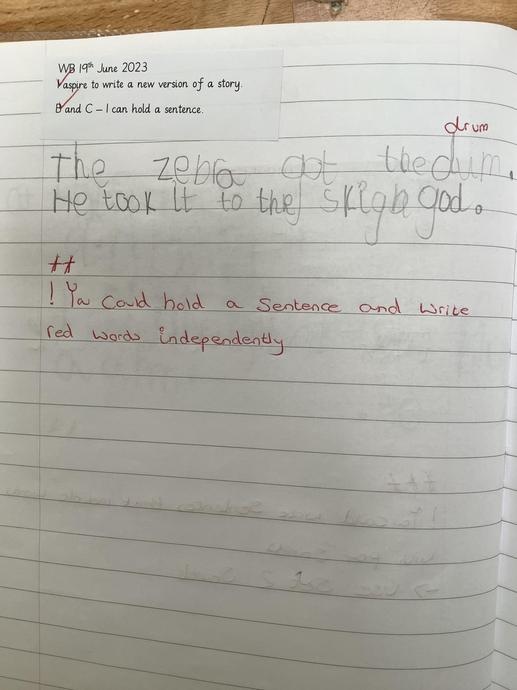 WB 19th June 2023
V aspire to write a new version of a story.
B and C – I can hold a sentence.
drum
The zebra got the dum.
He took it to the skigh god.
! You could hold a sentence and write
red words independently